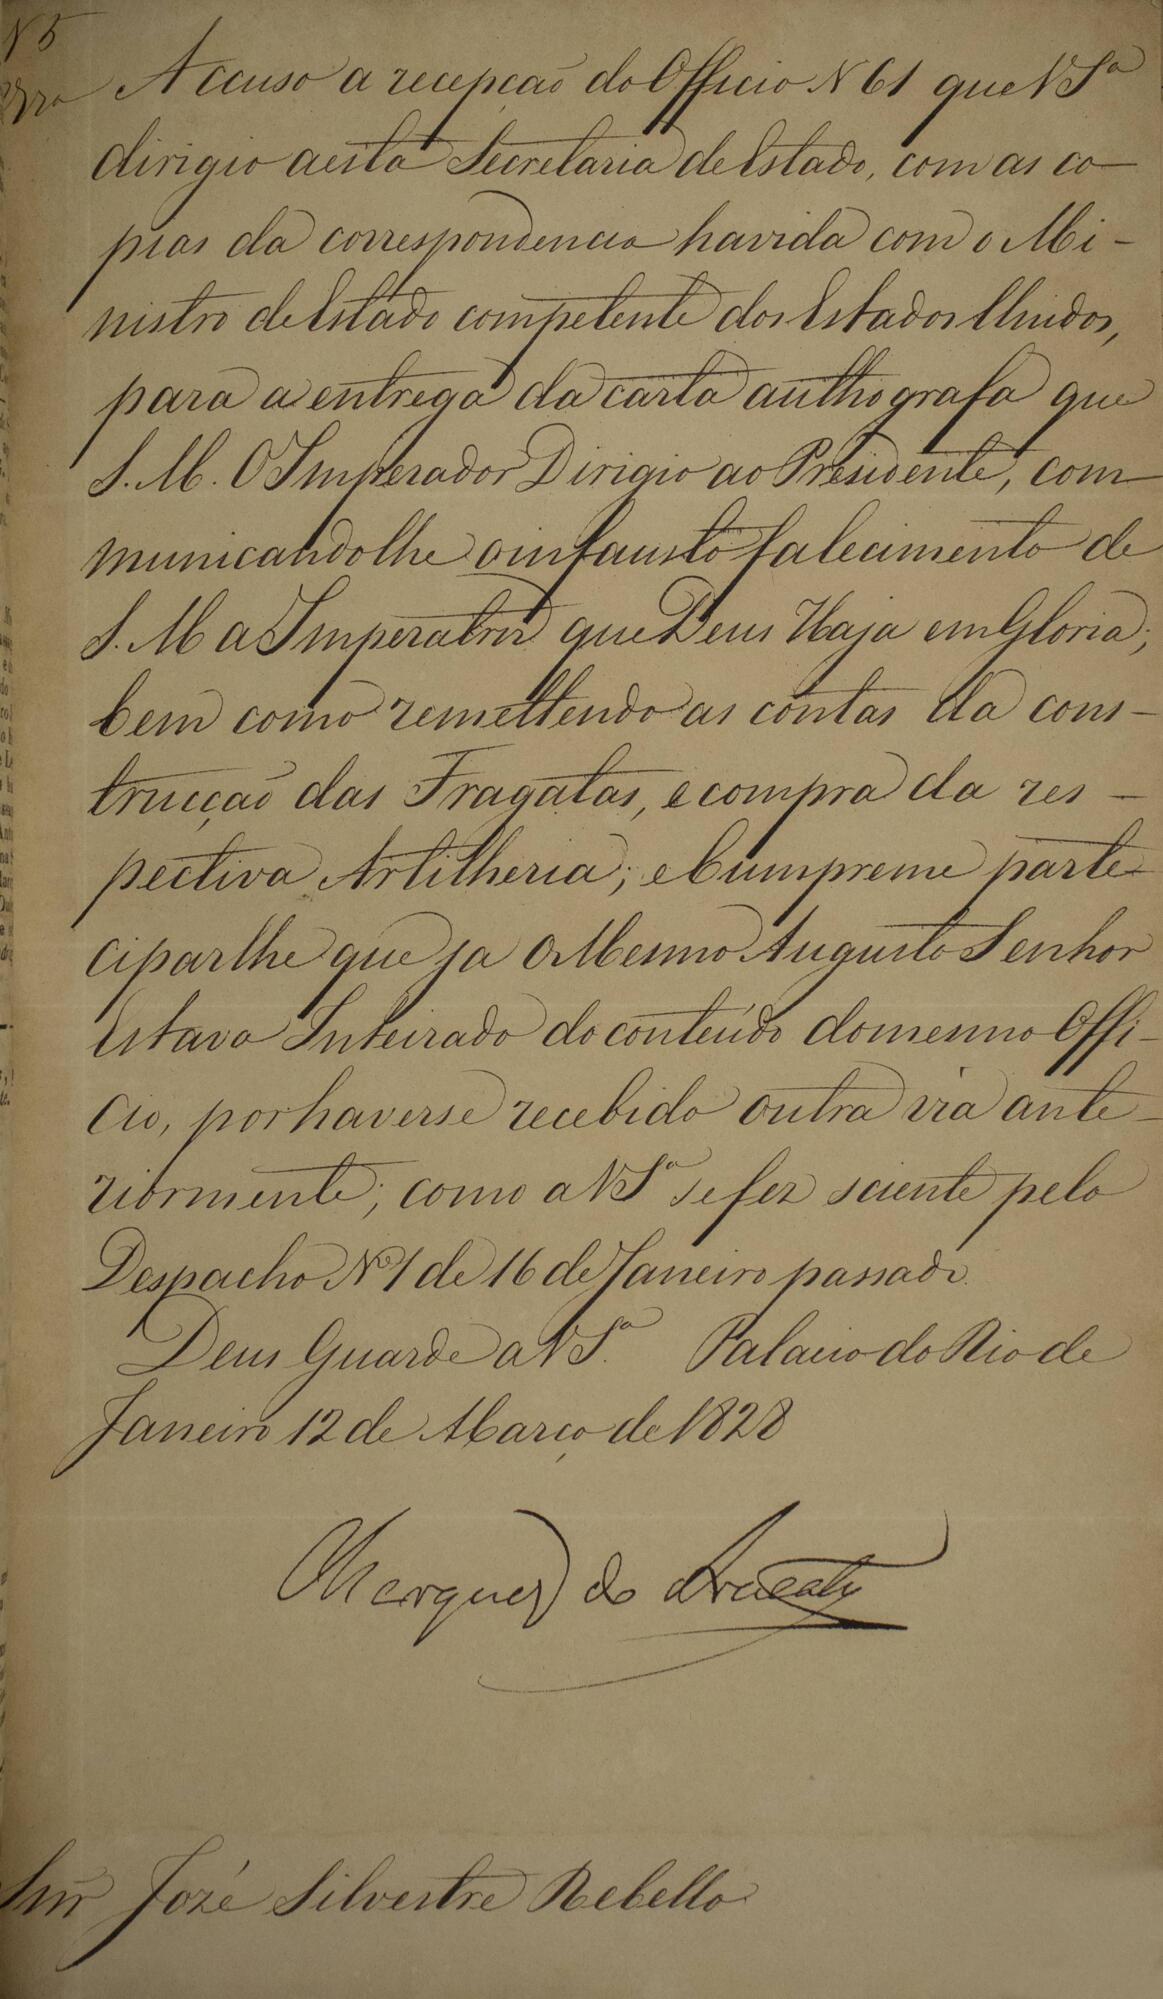 N 5
Accuso a recepção do Officio N 61 que V Sª
dirigio a esta Secretaria de Estado, com as co-
pias da correspondencia havida com o Mi-
nistro de Estado competente dos Estados Unidos,
para a entrega da carta authografa que
S. M. O Imperador Dirigio ao Presidente, com
municandolhe o infausto falecimento de
S. M a Imperatriz que Deus Haja em Gloria;
bem como remettendo as contas da cons-
trucção das Fragatas, e compra da res-
pectiva Artilheria; e Cumpreme parte-
ciparlhe que ja O Mesmo Augusto Senhor
Estava Inteirado do conteúdo do mesmo Offi-
cio, por haverse recebido outra via ante-
riormente; como a V Sª se fez sciente pelo
Despacho Nº 1 de 16 de Janeiro passado.
Deus Guarde a V Sª. Palacio do Rio de
Janeiro 12 de Março de 1828
Marquez do Aracaty
Snr José Silvestre Rebello